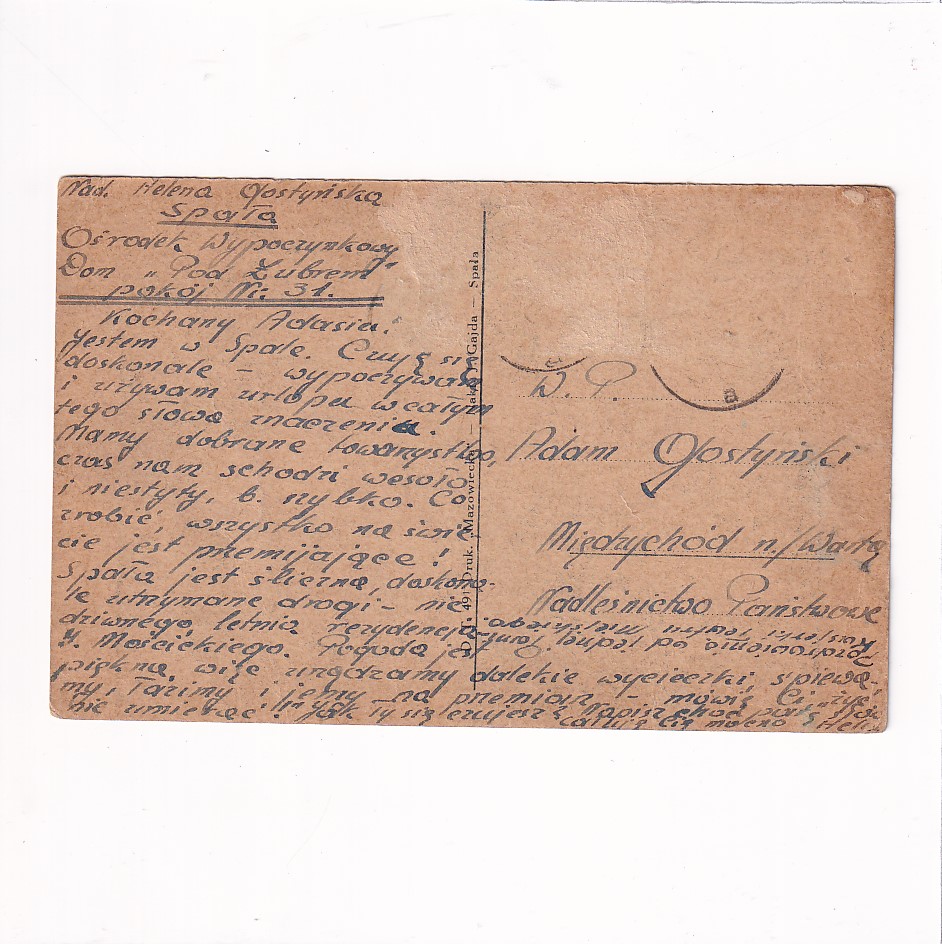 Nad. Helena Gostyńska
Spała
Ośrodek Wypoczynkowy
Dom „Pod Żubrem"
pokój Nr. 31.
Kochany Adasiu!
Jestem w Spale. Czuję się
doskonale – wypoczywam
i używam urlopu w całym
tego słowa znaczeniu.
Mamy dobrane towarzystwo,
czas nam schodzi wesoło
i niestyty, b. szybko. Co
zrobić, wszystko na świe-
cie jest przemijające!
Spała jest śliczna, doskona-
le utrzymane drogi – nie
dziwnego, letnia rezydencja
I. Mościckiego. Pogoda jest
piękna, więc urządzamy dalekie wycieczki, śpiewa-
my, łazimy i jemy na przemian – mówię Ci „życie
nie umierać!" Jak Ty się czujesz? Napisz choć parę słów
Całuję Cię mocno Hela
D. T. 491 Druk. „Mazowiecka" – Gajda – Spała
a
W. P.
Adam Gostyński
Międzychód n/Wartą
Nadleśnictwo Państwowe
Pozdrowienia od